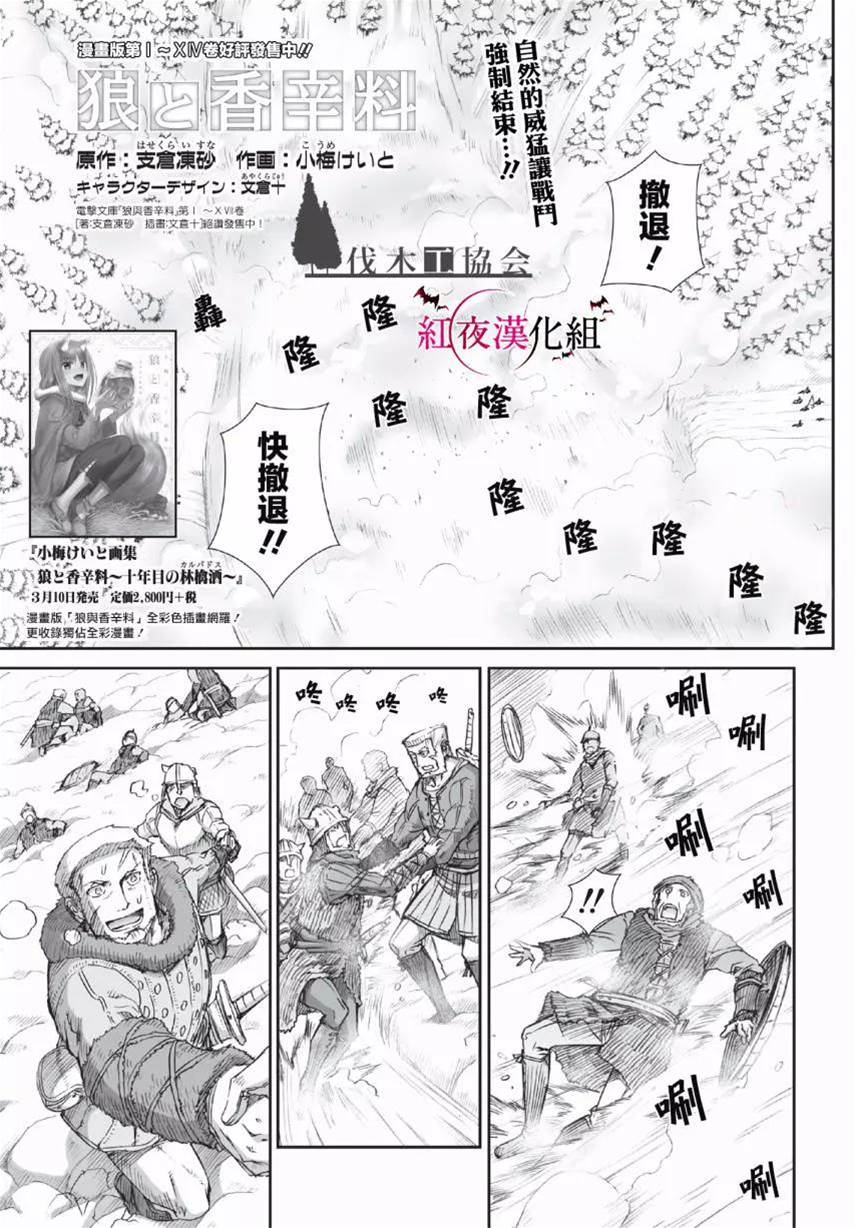 漫畫版第Ⅰ～ⅩⅣ卷好評發售中!!
狼と香辛料
はせくらいすな　こうめ
原作：支倉凍砂　作画：小梅けいと
あやくらじゅう
キャラクターデザイン：文倉十
電擊文庫「狼與香辛料」第Ⅰ～ⅩⅦ卷
[著:支倉凍砂　插畫:文倉十]絕讚發售中！
自然的威猛讓戰鬥
強制結束…!!
撤退！
伐木工協会
紅夜漢化組
轟
隆
隆
隆
隆
隆
隆
隆
隆
隆
快撤退!!
狼と香辛料
『小梅けいと画集
カルバドス
狼と香辛料～十年目の林檎酒～』
3月10日発売　定価2,800円+税
漫畫版「狼與香辛料」全彩色插畫網羅！
更收錄獨佔全彩漫畫！
唰
唰
唰
唰
唰
唰
!!
咚
咚
咚
咚